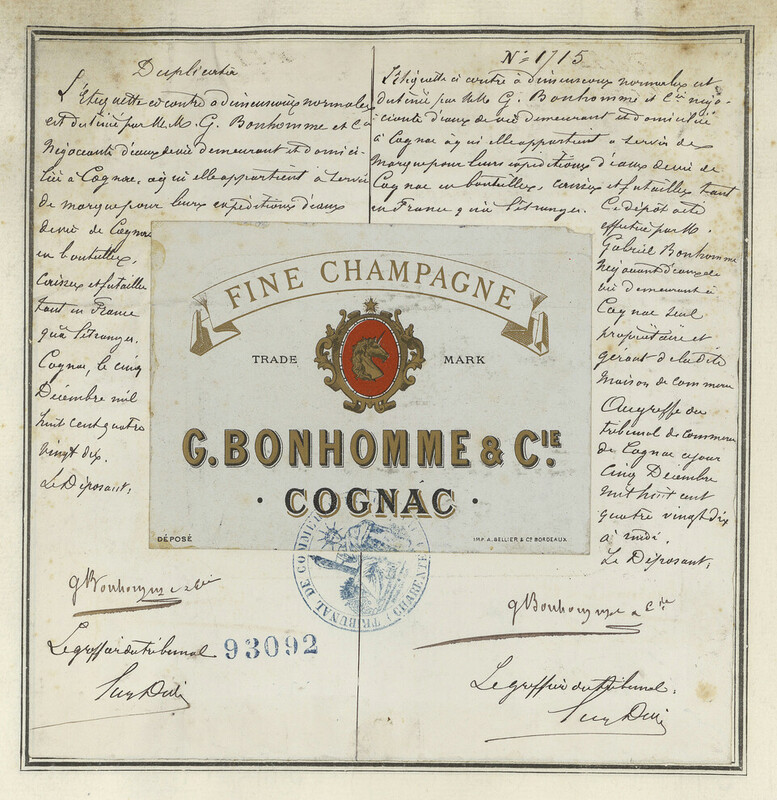 Duplicata
L'Etiquette ci contre à dimensions normales
est destinée par M.M. G. Bonhomme et Cie
Négociants d'eaux de vie demeurant et domici-
liés à Cognac, à qui elle appartient à servir
de marque pour leurs expéditions d'eaux
de vie de Cognac
en bouteilles,
caisses et futailles
tant en France
qu'à l'étranger.
Cognac, le cinq
Décembre mil
huit cent quatre
vingt dix.
Le Déposant,
G Bonhomme & Cie
Le greffier du tribunal
93092
No 1715
L'étiquette ci contre à dimensions normales est
destinée par M.M. G. Bonhomme et Cie négo-
ciants d'eaux de vie demeurant et domiciliés
à Cognac à qui elle appartient à servir de
marque pour leurs expéditions d'eaux de vie de
Cognac en bouteilles, caisses et futailles tant
en France qu'à l'étranger.
Ce dépôt a été
effectué par M.
Gabriel Bonhomme
Négociant d'eaux de
vie demeurant à
Cognac seul
propriétaire et
gérant de la dite
maison de commerce
Au greffe du
tribunal de commerce
de Cognac ce jour
Cinq Décembre
mil huit cent
quatre vingt dix
à midi.
Le Déposant,
G Bonhomme & Cie
Le greffier du Tribunal,
FINE CHAMPAGNE
TRADE MARK
G. BONHOMME & CIE.
· COGNAC ·
DÉPOSÉ
IMP. A. BELLIER & CE BORDEAUX
TRIBUNAL DE COMMERCE
CHARENTE